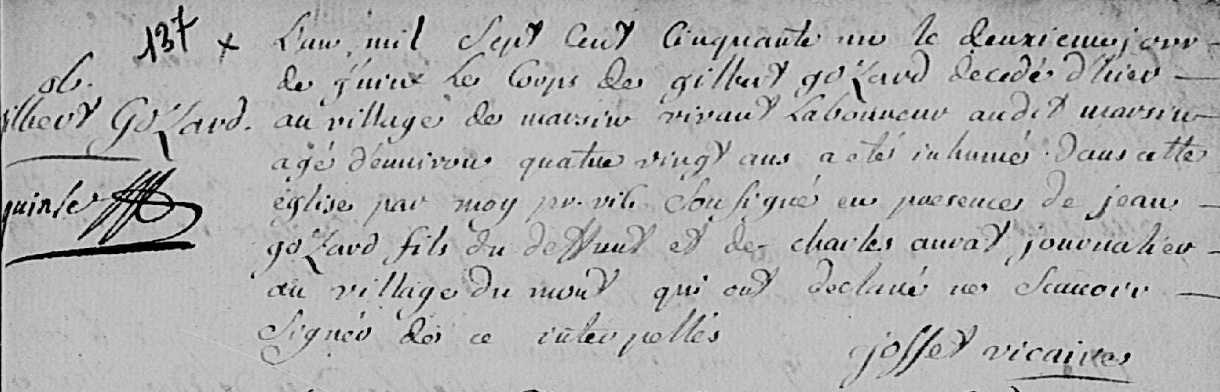 137 x L'an mil sept cent cinquante un le deuxieme jour
de juin le corps de gilbert goZard decedé d'hier
au village de marsin vivant Laboureur audit marsin
agé d'environ quatre vingt ans a eté inhumé dans cette
église par moy pr. vic. Soussigné en presence de jean
goZard fils du deffunt et de charles auvat journalier
au village du mont qui ont declaré ne scauoir
signer de ce interpellés
josset vicaire
sb.
gilbert GoZard.